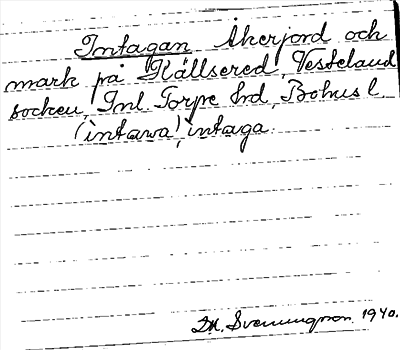 Intagan Åkerjord och
mark på Källsered, Vesteland
socken, Inl. Torpe hrd, Bohusl
(intawa), intaga.
D.H. Svenungson. 1940.